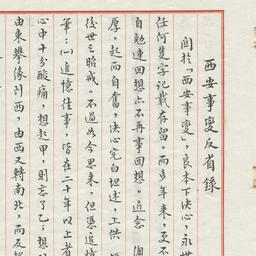 西安事變反省錄
關於「西安事變」，良本下決心，永世
任何隻字記載存留。而多年来，更不
自勉連回想亦不再事回想。近念
厚，起而自奮，決心完白坦述，上供
後世之昭戒。不過如今思来，但憑追憶
筆：㈠追憶往事，皆在二十年以上者
心中十分酸痛，想起甲，則忘了乙；想
由東攀像到西，由西又轉南北，而反